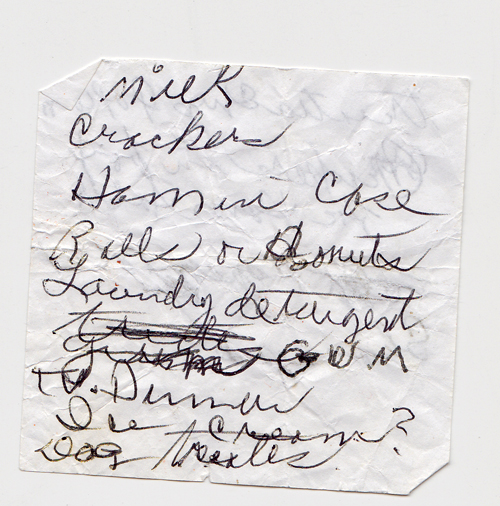 Milk
Crackers
Ham in Case
Rolls or Donuts
Laundry detergent
G W M
T.V. Dinner
Ice cream?
Dog treats